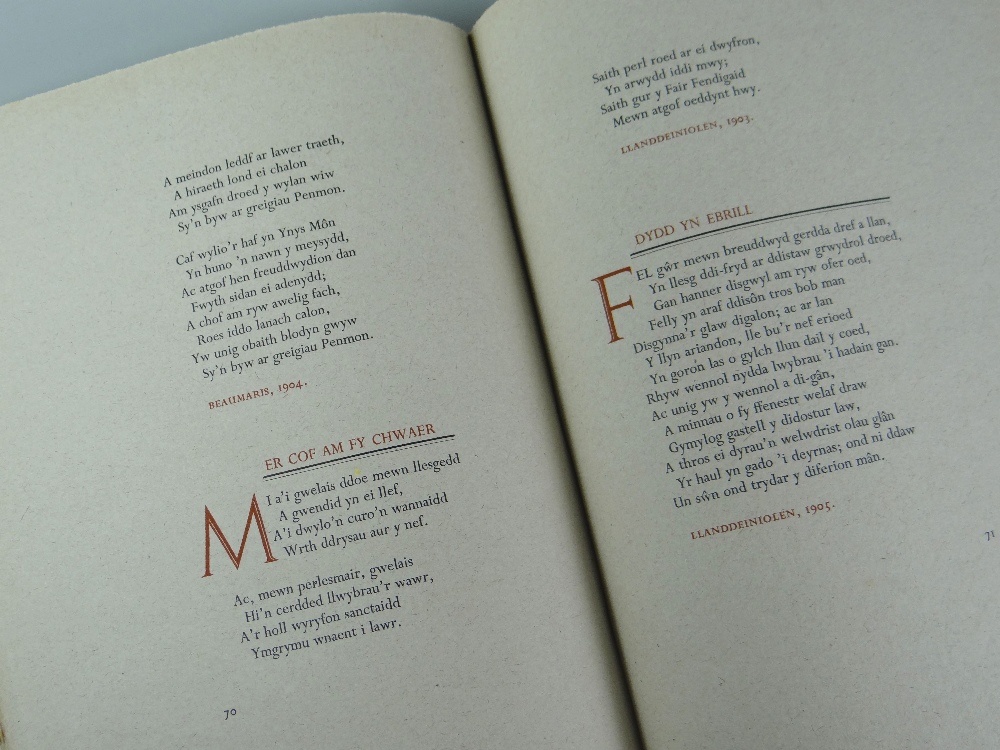 A meindon leddf ar lawer traeth,
A hiraeth lond ei chalon
Am ysgafn droed y wylan wiw
Sy'n byw ar greigiau Penmon.
Caf wylio'r haf yn Ynys Môn
Yn huno 'n nawn y meysydd,
Ac atgof hen freuddwydion dan
Fwyth sidan ei adenydd;
A chof am ryw awelig fach,
Roes iddo lanach calon,
Yw unig obaith blodyn gwyw
Sy'n byw ar greigiau Penmon.
BEAUMARIS, 1904.
ER COF AM FY CHWAER
MI a'i gwelais ddoe mewn llesgedd
A gwendid yn ei llef,
A'i dwylo'n curo'n wannaidd
Wrth ddrysau aur y nef.
Ac, mewn perlesmair, gwelais
Hi'n cerdded llwybrau'r wawr,
A'r holl wyryfon sanctaidd
Ymgrymu wnaent i lawr.
70
Saith perl roed ar ei dwyfron,
Yn arwydd iddi mwy;
Saith gur y Fair Fendigaid
Mewn atgof oeddynt hwy.
LLANDDEINIOLEN, 1903.
DYDD YN EBRILL
FEL gŵr mewn breuddwyd gerdda dref a llan,
Yn llesg ddi-fryd ar ddistaw grwydrol droed,
Gan hanner disgwyl am ryw ofer oed,
Felly yn araf ddisôn tros bob man
Disgynna'r glaw digalon; ac ar lan
Y llyn ariandon, lle bu'r nef erioed
Yn goron las o gylch llun dail y coed,
Rhyw wennol nydda lwybrau 'i hadain gan.
Ac unig yw y wennol a di-gân,
A minnau o fy ffenestr welaf draw
Gymylog gastell y didostur law,
A thros ei dyrau'n welwdrist olau glân
Yr haul yn gado 'i deyrnas; ond ni ddaw
Un sŵn ond trydar y diferion mân.
LLANDDEINIOLEN, 1905.
71